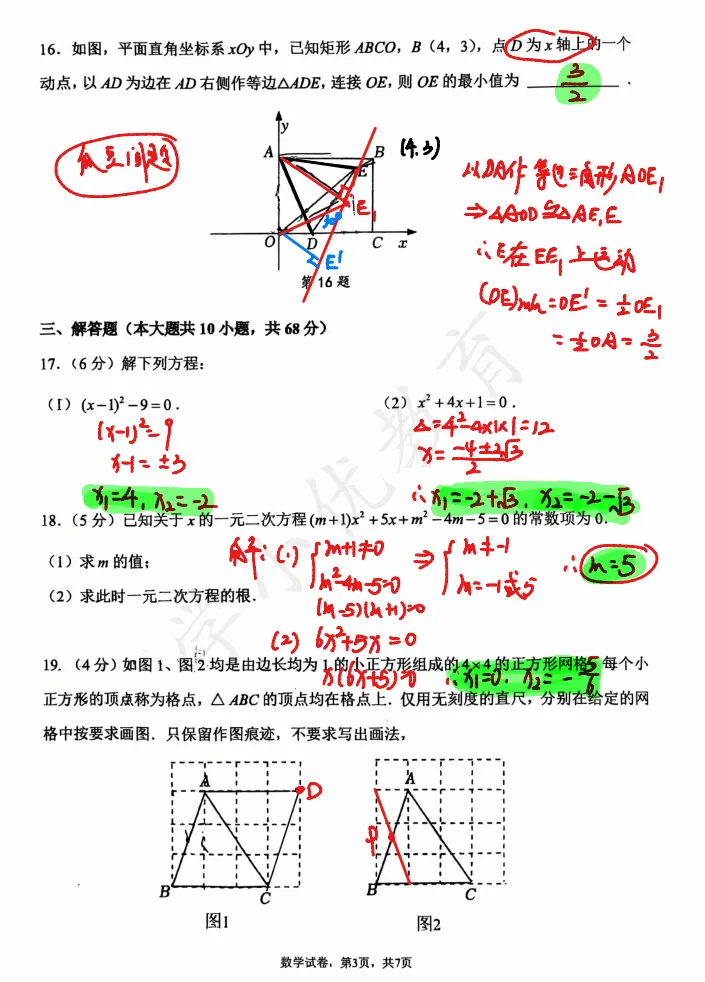 16．如图，平面直角坐标系 xOy 中，已知矩形 ABCO，B（4，3），点 D 为 x 轴上的一个
动点，以 AD 为边在 AD 右侧作等边△ADE，连接 OE，则 OE 的最小值为 3/2 ．
瓜豆问题
y
A
B
(4,3)
E
E₁
30°
O
D
C
x
E'
第 16 题
以OA作等边三角形AOE₁
⇒△AOD≌△AE₁E
∴E在EE₁上运动
(OE)min=OE'=½OE₁
=½OA=3/2
三、解答题（本大题共 10 小题，共 68 分）
17.（6 分）解下列方程：
（1）(x−1)²−9=0．
（2）x²+4x+1=0．
(x−1)²=9
x−1=±3
x₁=4, x₂=−2
△=4²−4×1×1=12
x=(−4±2√3)/2
∴x₁=−2+√3, x₂=−2−√3
18.（5 分）已知关于 x 的一元二次方程(m+1)x²+5x+m²−4m−5=0 的常数项为 0．
（1）求 m 的值；
（2）求此时一元二次方程的根．
解: (1) { m+1≠0 m²−4m−5=0 ⇒ { m≠−1 m=−1或5 ∴ m=5
(m−5)(m+1)=0
(2) 6x²+5x=0
x(6x+5)=0 ∴x₁=0, x₂=−5/6
19.（4 分）如图 1、图 2 均是由边长均为 1 的小正方形组成的 4×4 的正方形网格，每个小
正方形的顶点称为格点，△ ABC 的顶点均在格点上．仅用无刻度的直尺，分别在给定的网
格中按要求画图．只保留作图痕迹，不要求写出画法，
A
D
B
C
图1
A
P
B
C
图2
数学试卷，第3页，共7页
学小优教育